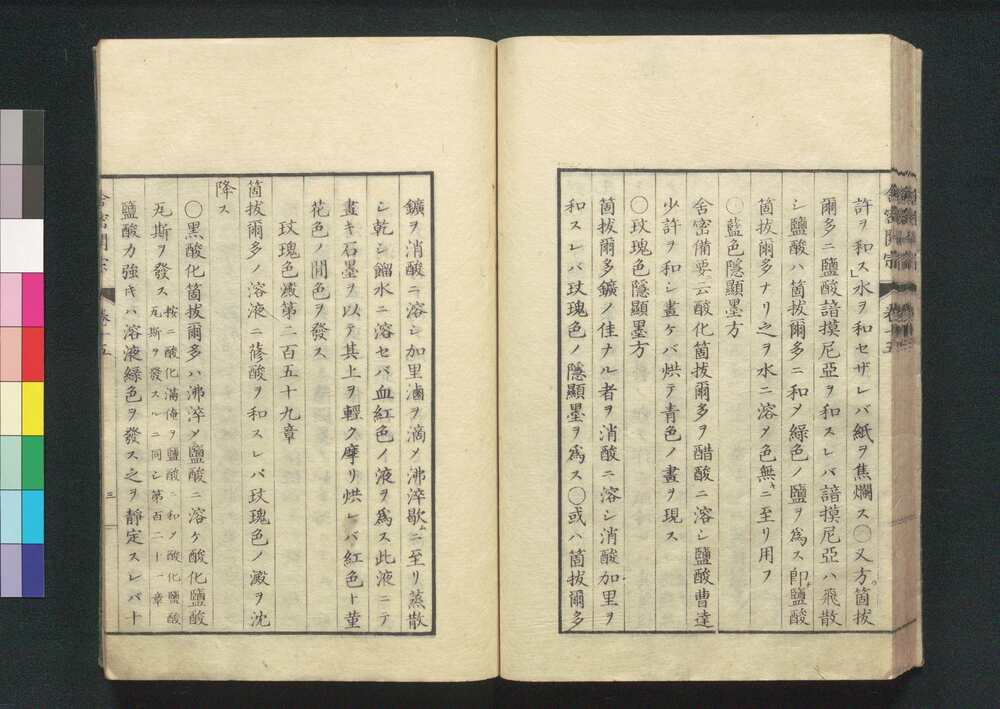 許ヲ和ス」水ヲ和セザレバ紙ヲ焦爛ス〇又方。箇拔
爾多ニ鹽酸諳摸尼亞ヲ和スレバ諳摸尼亞ハ飛散
シ鹽酸ハ箇拔爾多ニ和メ綠色ノ鹽ヲ爲ス卽鹽酸
箇拔爾多ナリ之ヲ水ニ溶メ色無キニ至リ用ヲ
〇藍色隱顯墨方
舍密備要云酸化箇拔爾多ヲ醋酸ニ溶シ鹽酸曹達
少許ヲ和シ畫ケバ烘テ青色ノ畫ヲ現ス
〇玫瑰色隱顯墨方
箇拔爾多鑛ノ佳ナル者ヲ消酸ニ溶シ消酸加里ヲ
和スレバ玫瑰色ノ隱顯墨ヲ爲ス〇或ハ箇拔爾多
鑛ヲ消酸ニ溶シ加里滷ヲ滴メ沸淬歇ムニ至リ蒸散
シ乾シ餾水ニ溶セバ血紅色ノ液ヲ爲ス此液ニテ
畫キ石墨ヲ以テ其上ヲ輕ク摩リ烘レバ紅色ト菫
花色ノ間色ヲ發ス
玫瑰色澱第二百五十九章
箇拔爾多ノ溶液ニ蓚酸ヲ和スレバ玫瑰色ノ澱ヲ沈
降ス
〇黑酸化箇拔爾多ハ沸淬メ鹽酸ニ溶ケ酸化鹽酸
瓦斯ヲ發ス
按ニ酸化滿俺ヲ鹽酸ニ和メ酸化鹽酸
瓦斯ヲ發スルニ同シ第百二十一章
鹽酸力強キハ溶液綠色ヲ發ス之ヲ靜定スレバ十
舍密開宗
卷十五
三